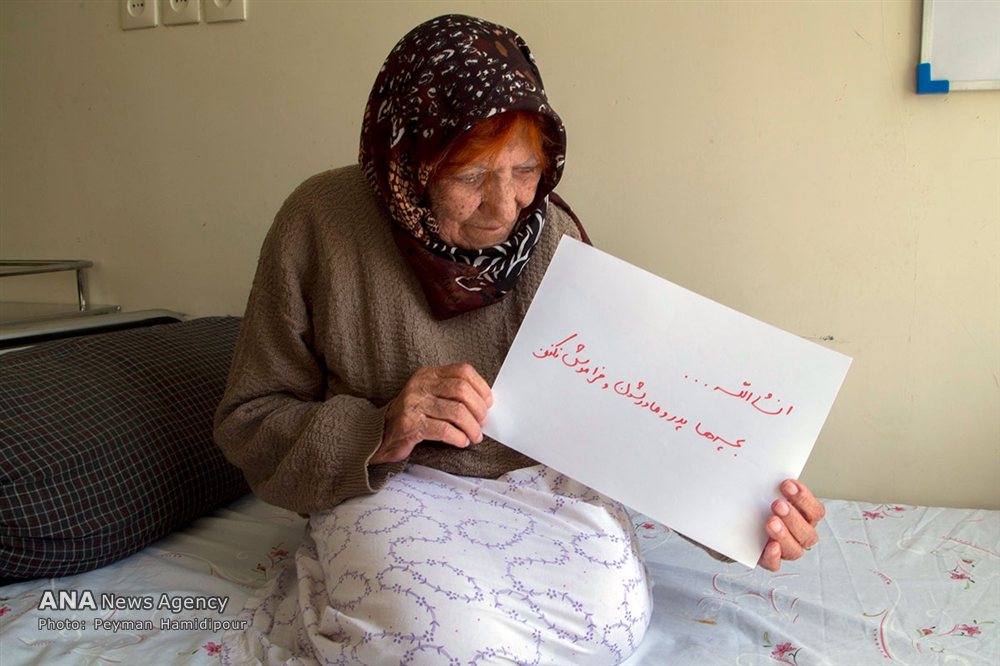 انشاالله ...
بچه‌ها پدر و مادرشون و فراموش نکنن
ANA News Agency
Photo: Peyman Hamidipour